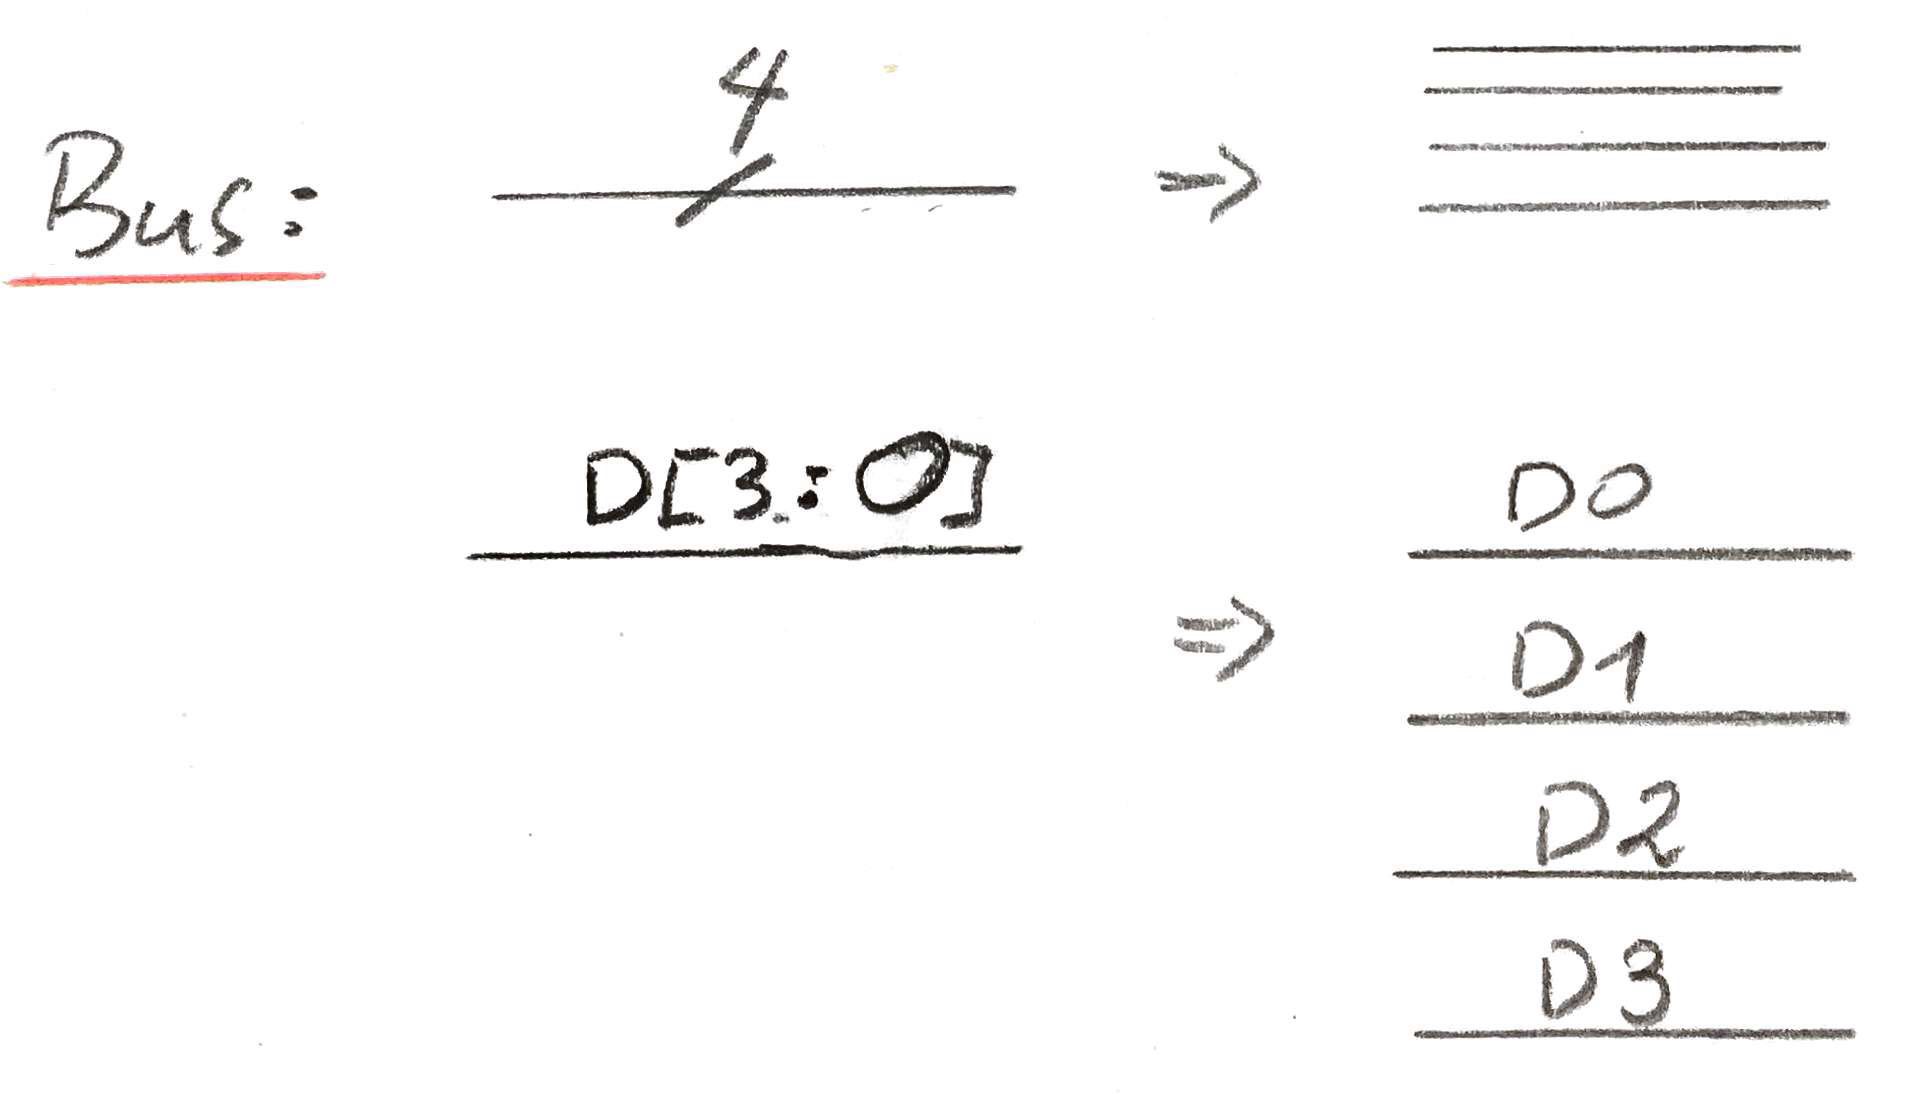 4
Bus:
D[3:0]
D0
D1
D2
D3